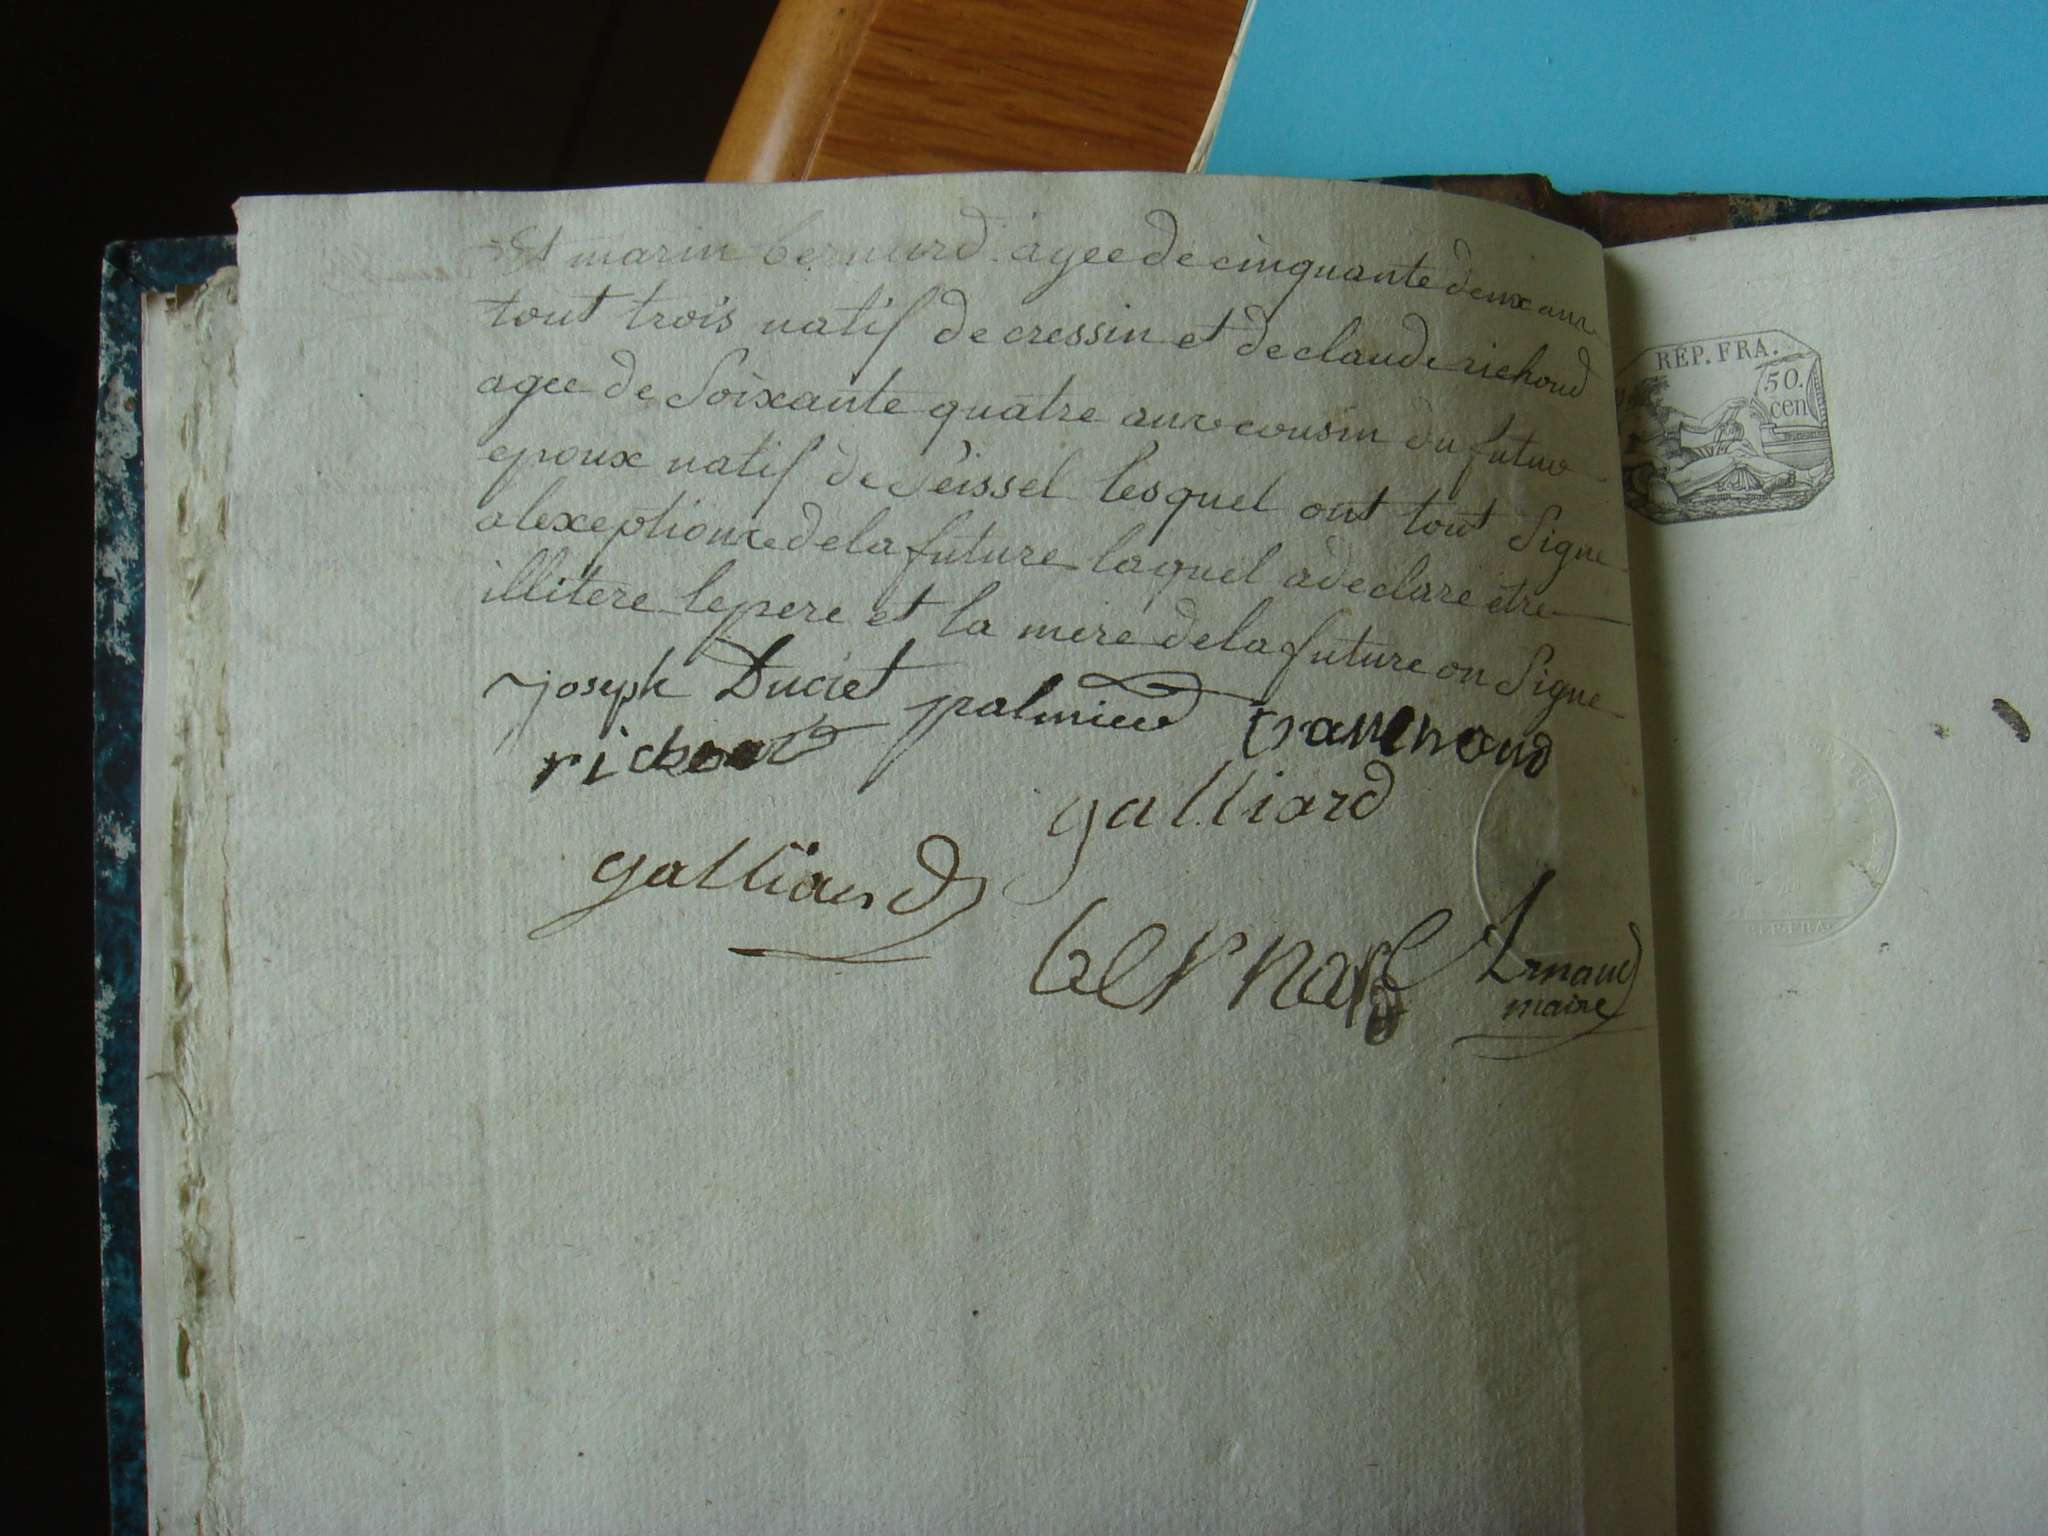 Et marin bernard agee de cinquante deux ans
tout trois natif de cressin et de claude richond
agee de Soixante quatre ans cousin du futur
epoux natif de Seissel lesquel ont tout Signe
a lexeption de la future laquel a declare être
illitere le pere et la mere de la future on Signe
joseph Duciet palmied
richond
galliard
galliard
bernard
Arnaud
maire
REP. FRA.
50.
cen
REP. FRA.